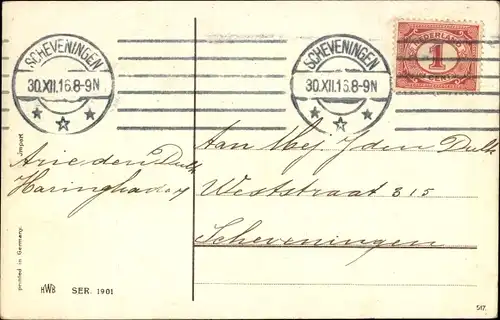 SCHEVENINGEN
30.XII.16.8-9N
SCHEVENINGEN
30.XII.16.8-9N
NEDERLAND
1
CENT
Aan Mej. J den Dulk
Weststraat 315
Scheveningen
Arie den Dulk
Haringkade 7
Import
printed in Germany.
HWB SER. 1901
517.